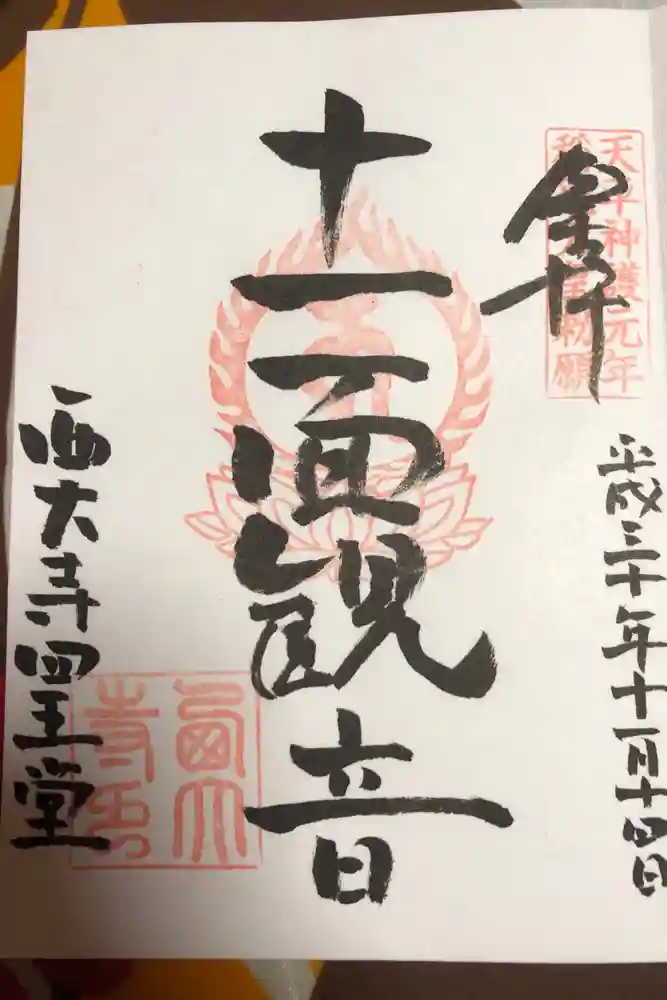 奉拝
天平神護元年
勅願
平成三十年十一月十四日
十一面観音
西大寺四王堂
西大寺印